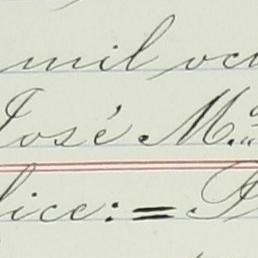 mil oc
José M.a
lice: =